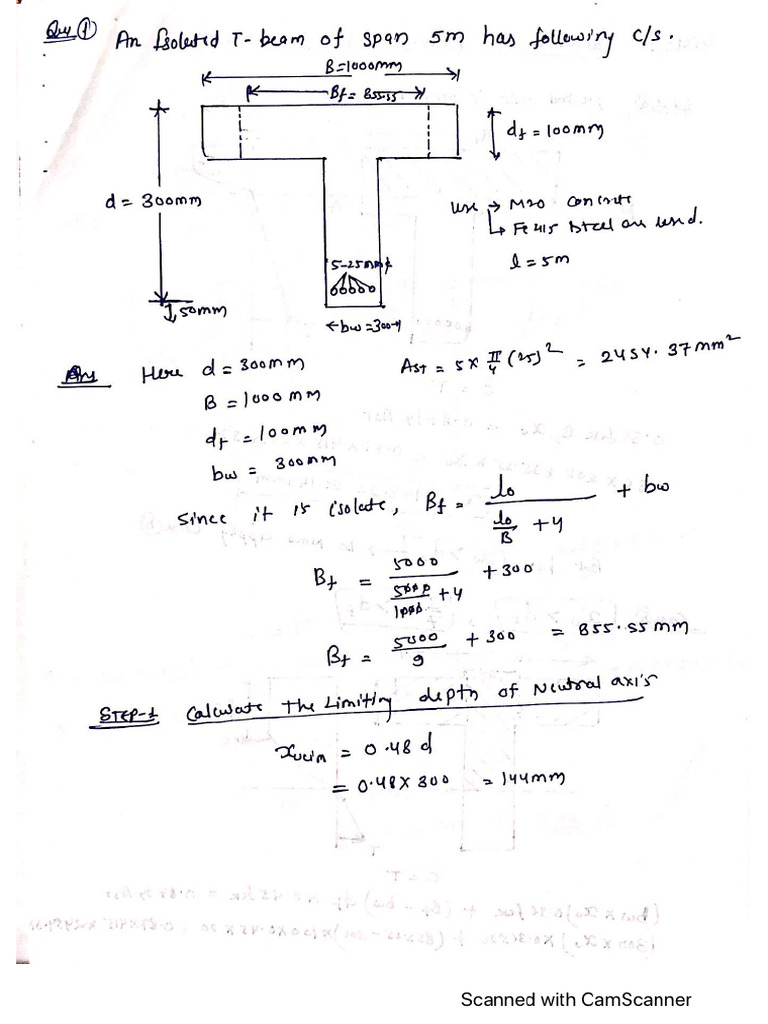 Que ① An Isolated T-beam of span 5m has following c/s.
B=1000mm
Bf = 855.55
df = 100mm
d = 300mm
Use → M20 Concrete
↳ Fe415 Steel are used.
l = 5m
5-25mmϕ
50mm
bw = 300
Ans Here d = 300mm Ast = 5 × π/4 (25)² = 2454.37 mm²
B = 1000 mm
df = 100mm
bw = 300mm
Since it is isolate, Bf = lo / (lo/B + 4) + bw
Bf = 5000 / (5000/1000 + 4) + 300
Bf = 5000/9 + 300 = 855.55 mm
STEP-1 Calculate The Limiting depth of Neutral axis
xulim = 0.48 d
= 0.48 × 300 = 144mm
Scanned with CamScanner